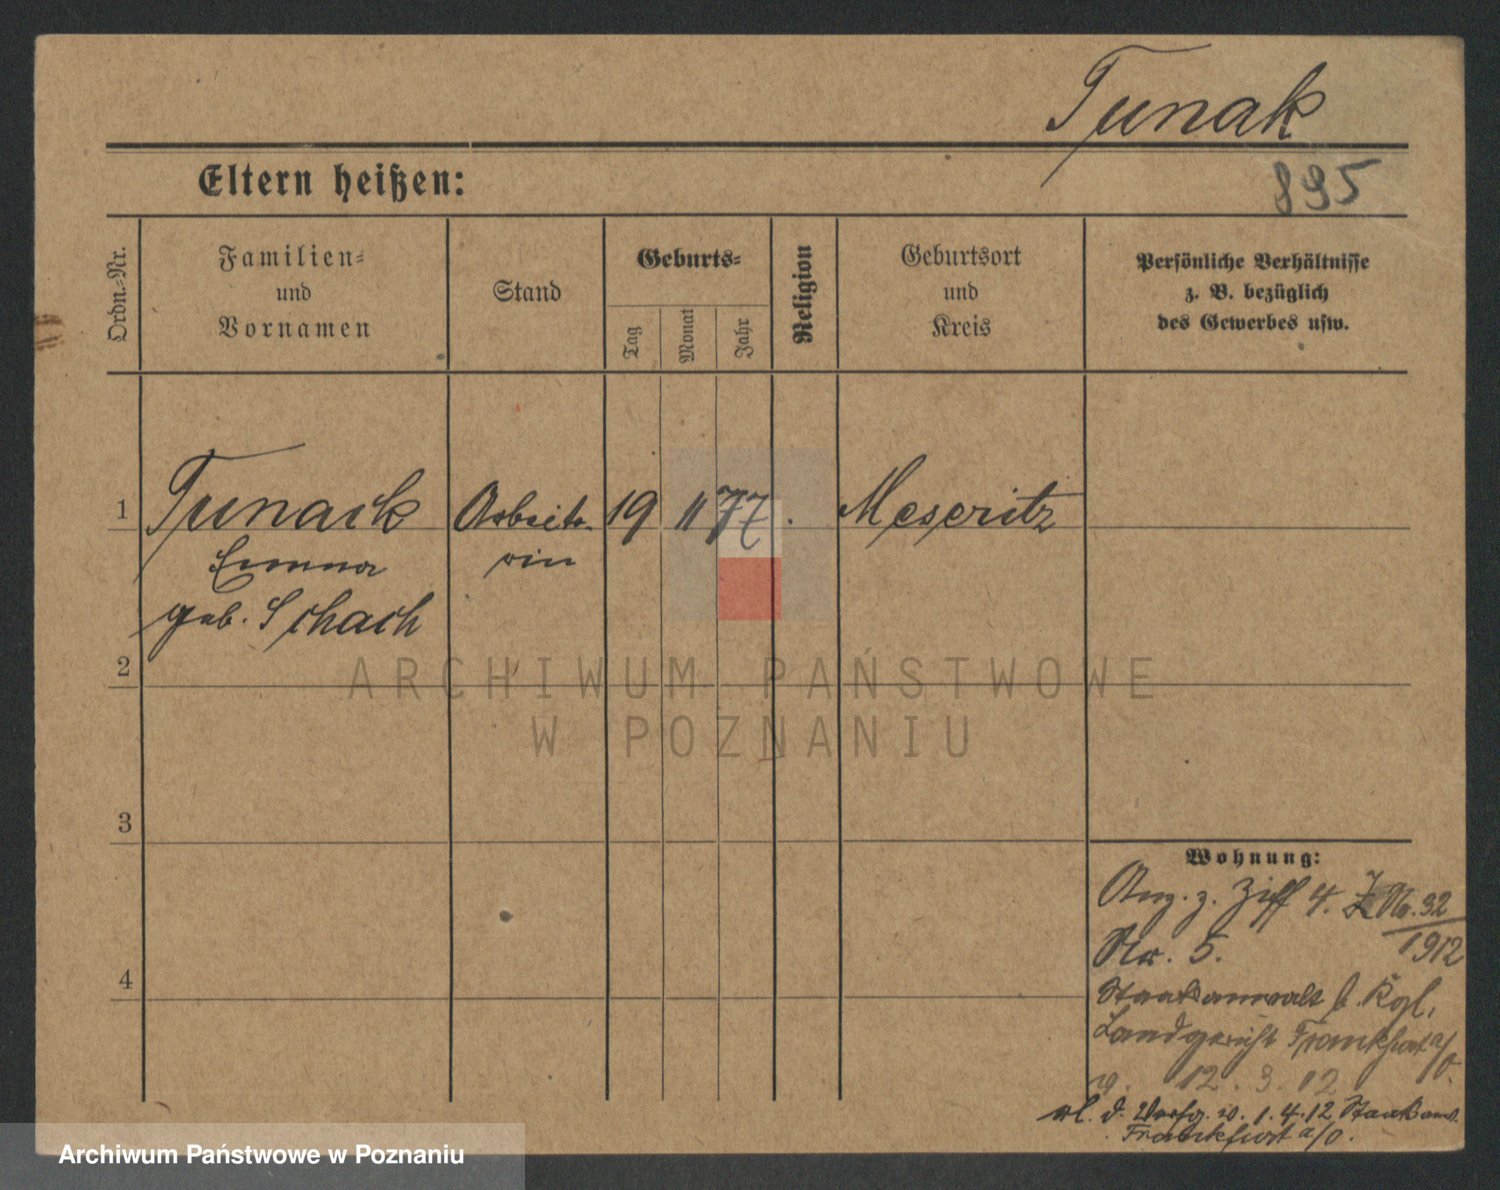 Tunak
895
Eltern heißen:
Ordn.-Nr.
Familien-
und
Vornamen
Stand
Geburts-
Tag
Monat
Jahr
Religion
Geburtsort
und
Kreis
Persönliche Verhältnisse
z. B. bezüglich
des Gewerbes usw.
1
Tunack
Arbeite-
19
11
77
.
Meseritz
Emma
rin
geb. Schach
2
ARCHIWUM PAŃSTWOWE
W POZNANIU
3
Wohnung:
Anz. z. Ziff 4. J No. 32
1912
Nr. 5.
4
Staatsanwalt b. Kgl.
Landgericht Frankfurt a/O.
v. 12. 3. 12
erl. d. Verfg. v. 1.4.12 Staatsanw.
Frankfurt a/O.
Archiwum Państwowe w Poznaniu